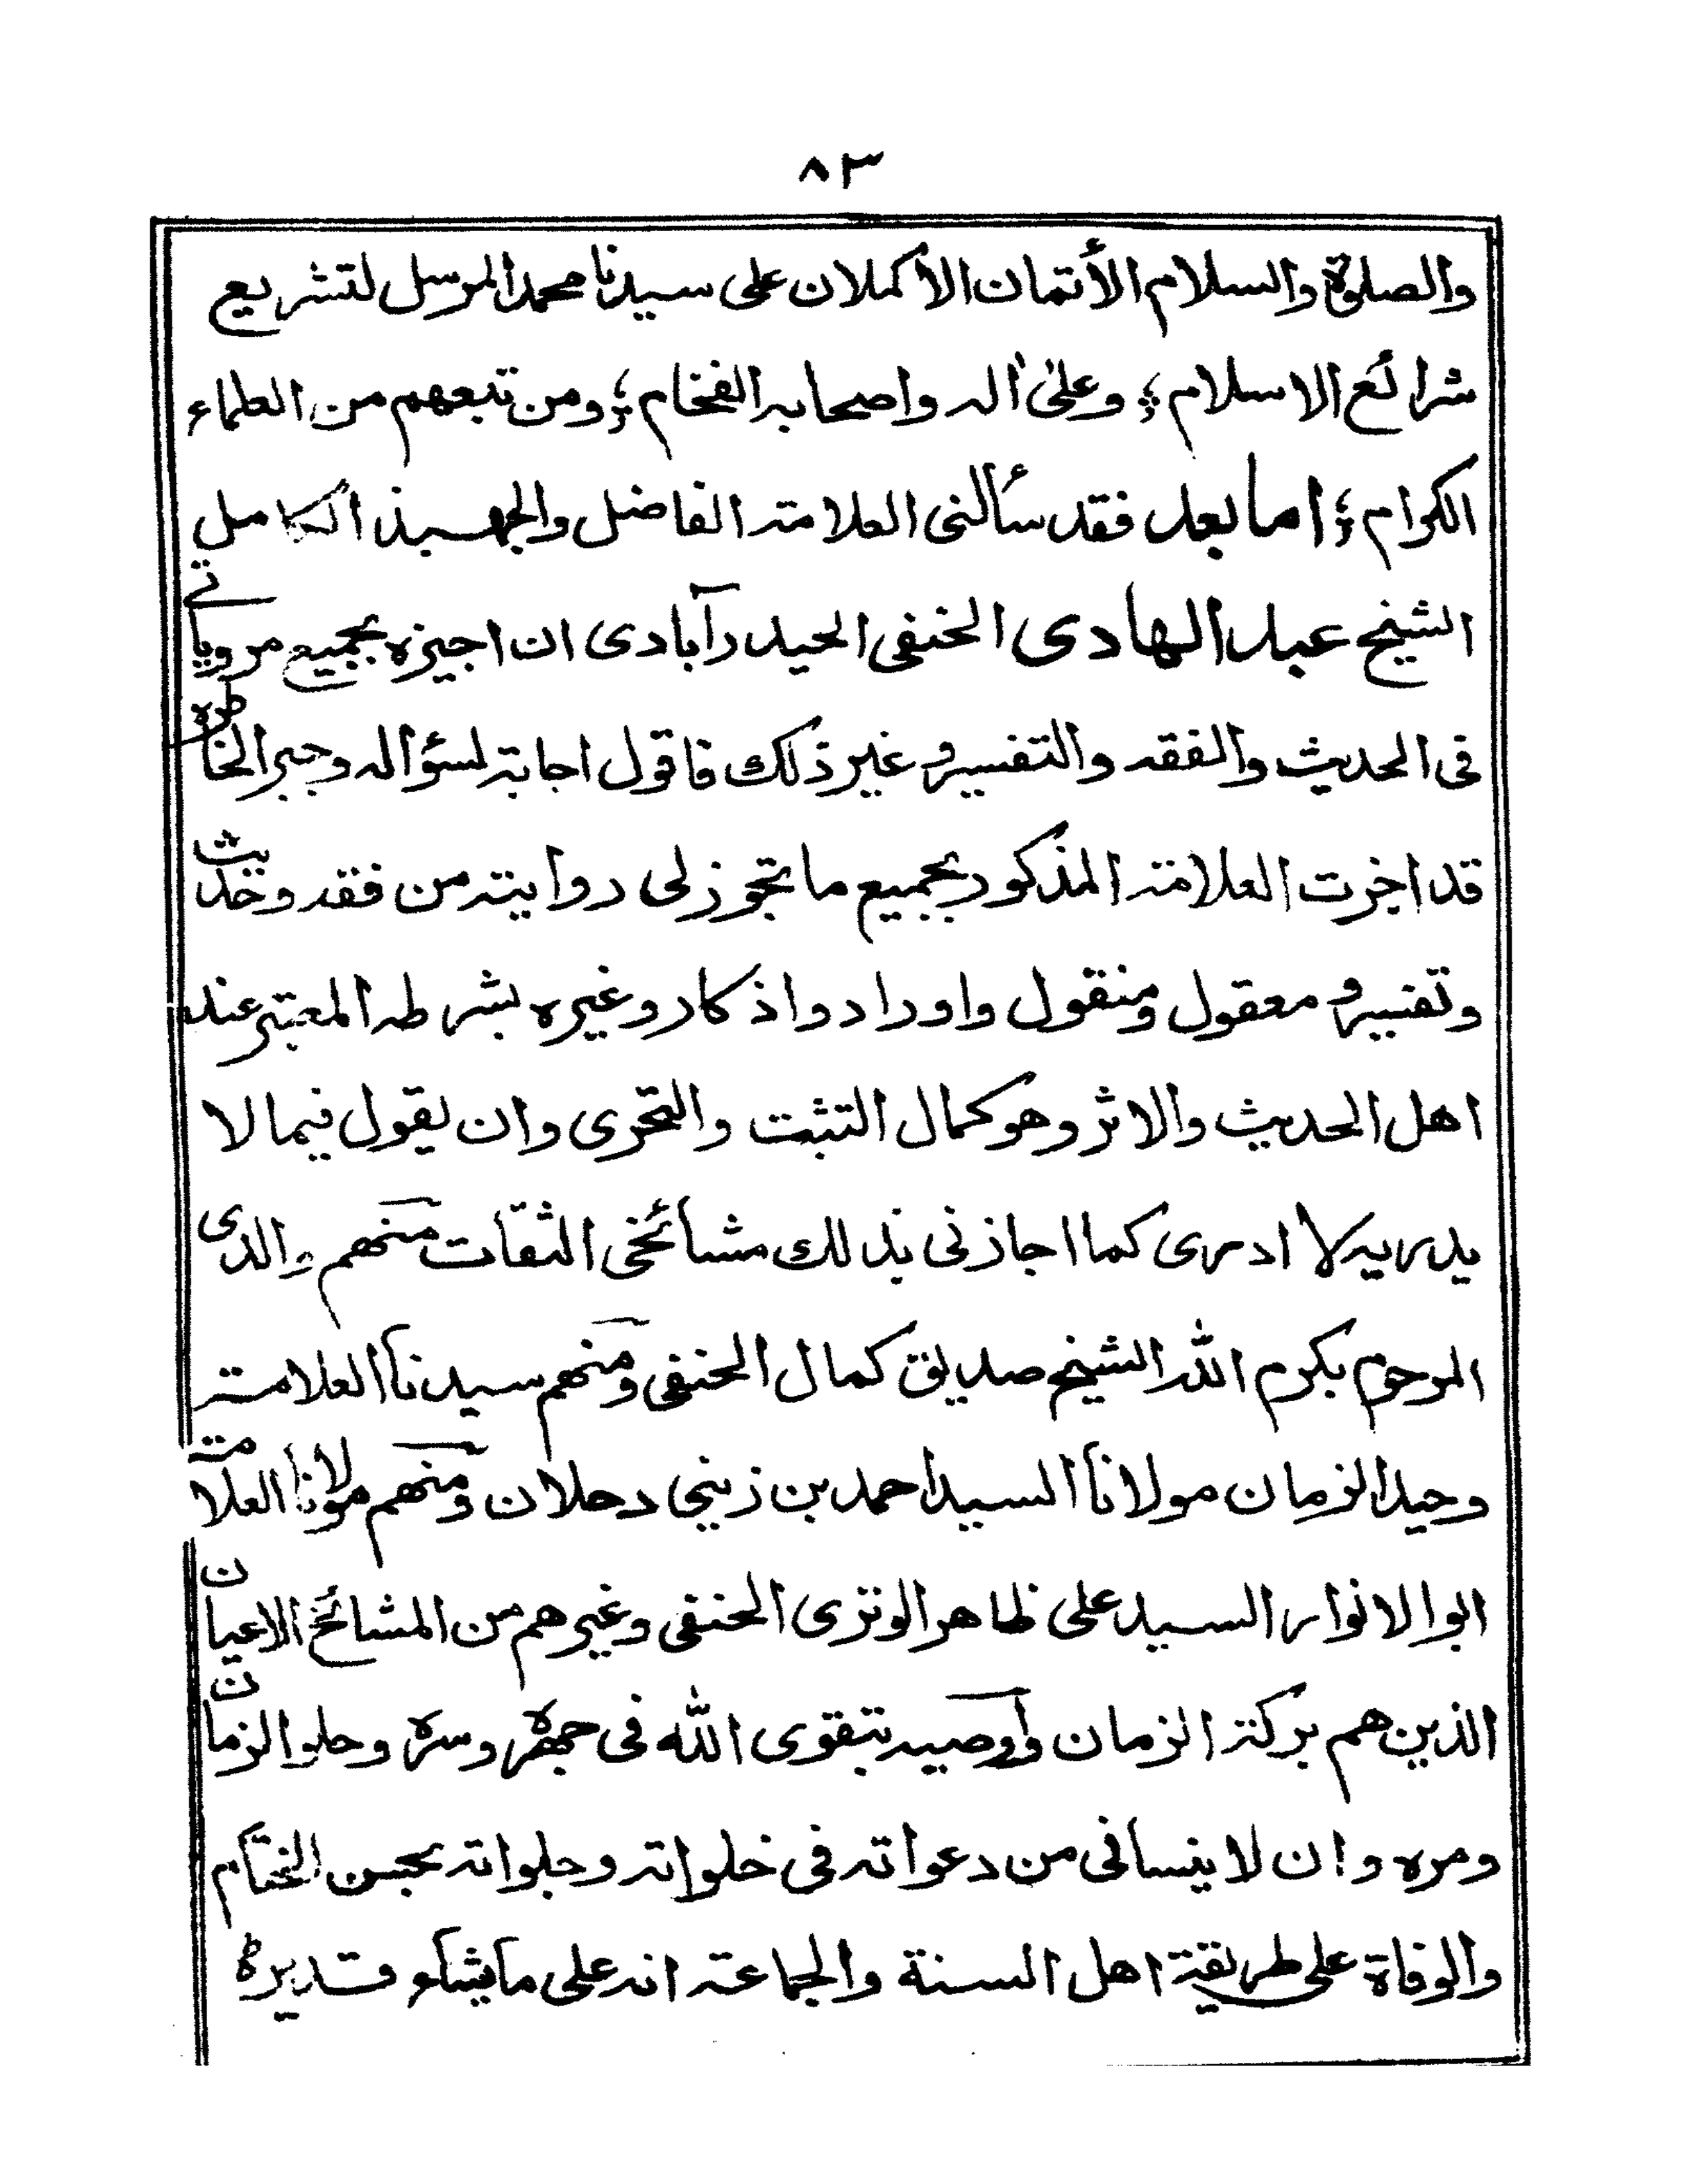 ٨٣
والصلوة والسلام الأتمان الأكملان على سيدنا محمد المرسل لتشريع
شرائع الاسلام ؛ وعلى أله واصحابه الفخام ؛ ومن تبعهم من العلماء
الكرام ؛ اما بعد فقد سألنى العلامة الفاضل والجهبذ الكامل
الشيخ عبد الهادى الحنفى الحيدرآبادى ان اجيزه بجميع مروياتى
فى الحديث والفقه والتفسير وغير ذلك فاقول اجابة لسؤاله وجبر الخاطره
قد اجزت العلامة المذكور بجميع ما تجوز لى روايته من فقه وحديث
وتفسير و معقول ومنقول واوراد واذكار وغيره بشرطه المعتبر عند
اهل الحديث والاثر وهو كمال التثبت والتحرى وان يقول فيما لا
يدريه لا ادرى كما اجازنى بذلك مشائخى الثقات منهم والدى
المرحوم بكرم الله الشيخ صديق كمال الحنفى ومنهم سيدنا العلامة
وحيد الزمان مولانا السيد احمد بن زيني دحلان ومنهم مولانا العلامة
ابوالانوار السيد على ظاهر الوترى الحنفى وغيرهم من المشائخ الاعيان
الذين هم بركة الزمان وأوصيه بتقوى الله فى جهره وسره وحلو الزمان
ومره وان لا ينسانى من دعواته فى خلواته وجلواته بحسن الختام
والوفاة على طريقة اهل السنة والجماعة انه على ما يشاء قدير